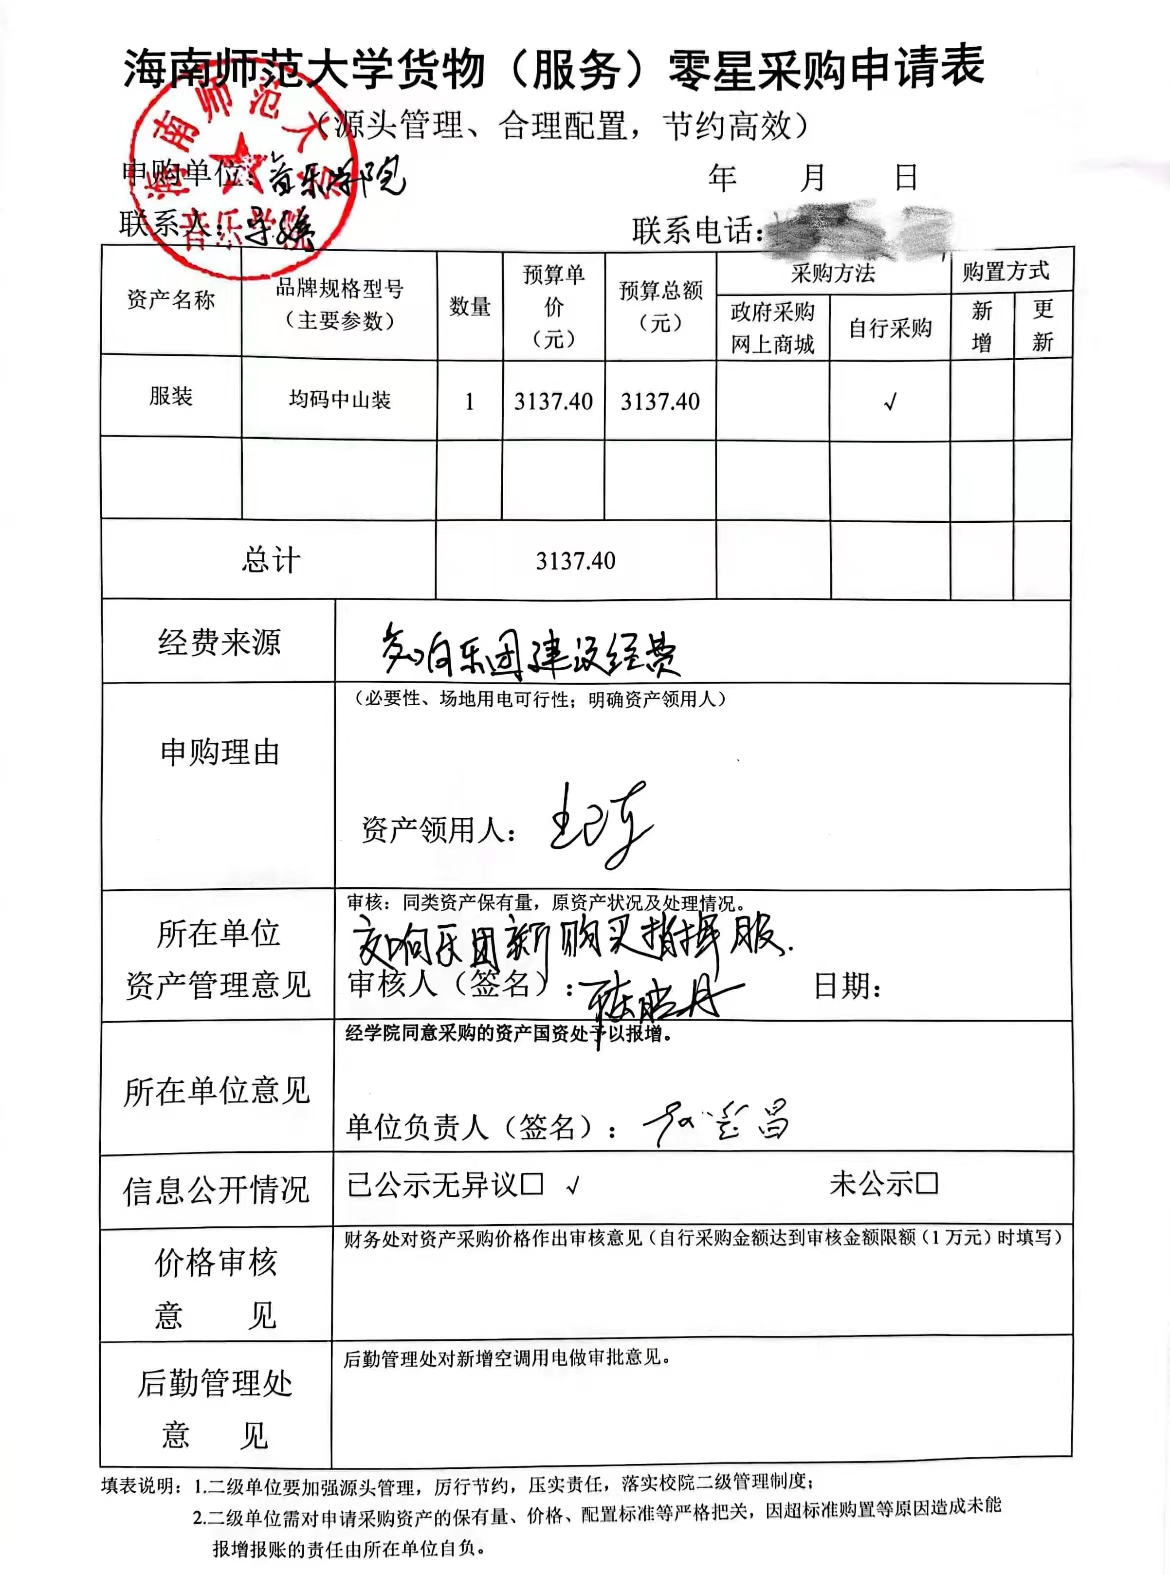 海南师范大学货物（服务）零星采购申请表
（源头管理、合理配置，节约高效）
海南师范大学
音乐学院
申购单位：音乐学院 年 月 日
联系人： 联系电话：
资产名称 品牌规格型号（主要参数） 数量 预算单价（元） 预算总额（元） 采购方法 购置方式
政府采购网上商城 自行采购 新增 更新
服装 均码中山装 1 3137.40 3137.40 √
总计 3137.40
经费来源 交响乐团建设经费
申购理由 （必要性、场地用电可行性；明确资产领用人）
资产领用人：
所在单位资产管理意见 审核：同类资产保有量，原资产状况及处理情况。
交响乐团新购买指挥服.
审核人（签名）： 日期：
所在单位意见 经学院同意采购的资产国资处予以报增。
单位负责人（签名）：
信息公开情况 已公示无异议□ √ 未公示□
价格审核意 见 财务处对资产采购价格作出审核意见（自行采购金额达到审核金额限额（1万元）时填写）
后勤管理处意 见 后勤管理处对新增空调用电做审批意见。
填表说明：1.二级单位要加强源头管理，厉行节约，压实责任，落实校院二级管理制度；
2.二级单位需对申请采购资产的保有量、价格、配置标准等严格把关，因超标准购置等原因造成未能
报增报账的责任由所在单位自负。